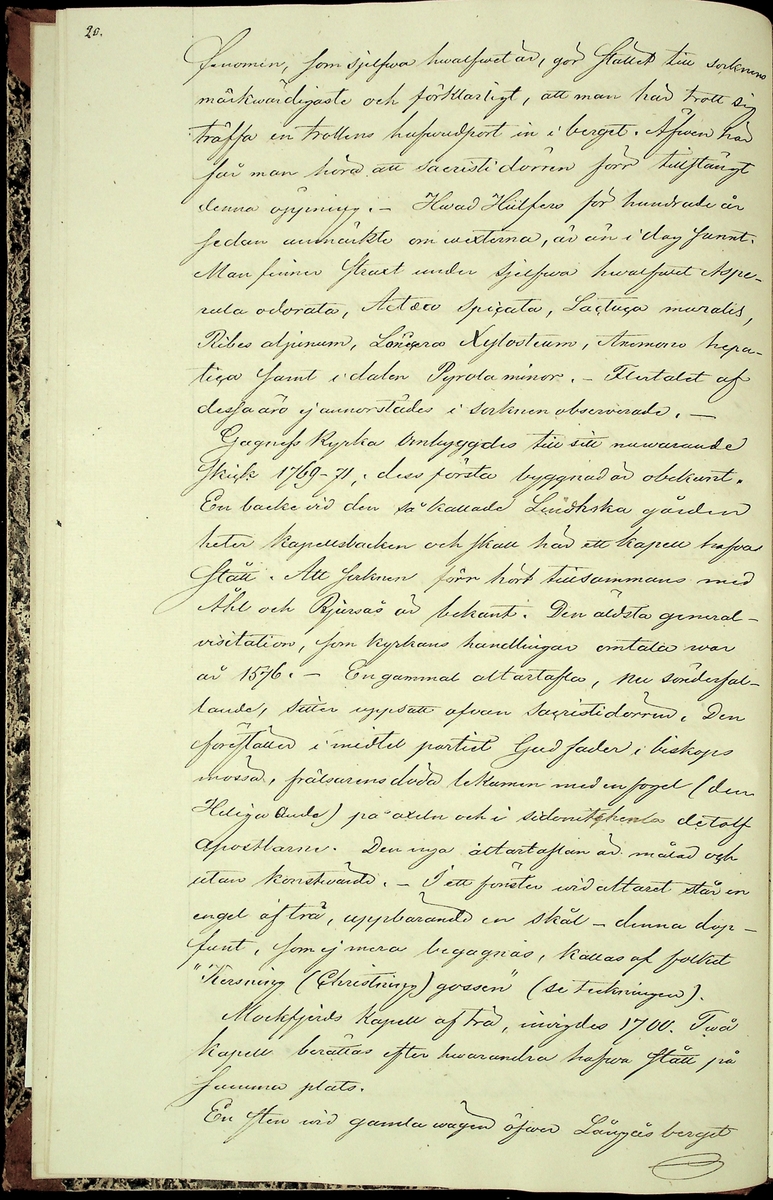 20.
fenomen, som sjelfwa hwalfwet är, gör stället till socknens
märkwärdigaste och förklarligt, att man här trott sig
träffa en trollens hufwudport in i berget. Äfwen här
får man höra att sacristidörren förr tillstängt
denna öppning. – Hwad Hülfers för hundrade år
sedan anmärkte om wexterna, är än i dag sannt.
Man finner straxt under sjelfwa hwalfwet Aspe-
rula odorata, Actæa spicata, Lactuca muralis,
Ribes alpinum, Lonicera Xylosteum, Anemone hepa-
tica samt i dalen Pyrola minor. – Flertalet af
dessa äro ej annorstädes i socknen observerade. –
Gagnefs Kyrka ombyggdes till sitt nuwarande
skick 1769-71, dess första byggnad är obekant.
En backe vid den så kallade Lindhska gården
heter Kapellsbacken och skall här ett kapell hafwa
stått. Att socknen förr hört tillsammans med
Åhl och Bjursås är bekant. Den äldsta general-
visitation, som kyrkans handlingar omtala war
år 1576. – En gammal altartafla, nu sönderfal-
lande, sitter uppsatt ofvan sacristidörren. Den
föreställer i midtel partiet Gud fader i biskops
mössa, frälsarens döda lekamen med en fogel (den
Helige Ande) på axeln och i sidoni<s>t</s>cherna de tolf
apostlarne. Den nya altartaflan är målad och
utan konstwärde. – I ett fönster wid altaret står en
engel af trä, uppbärande en skål – denna dop-
funt, som ej mera begagnas, kallas af folket
"Kersning (Christning) gossen" (se teckningen).
Mockfjerds Kapell af trä, invigdes 1700. Twå
kapell berättas efter hwarandra hafwa stått på
samma plats.
En sten wid gamla wägen öfwer Långåsberget